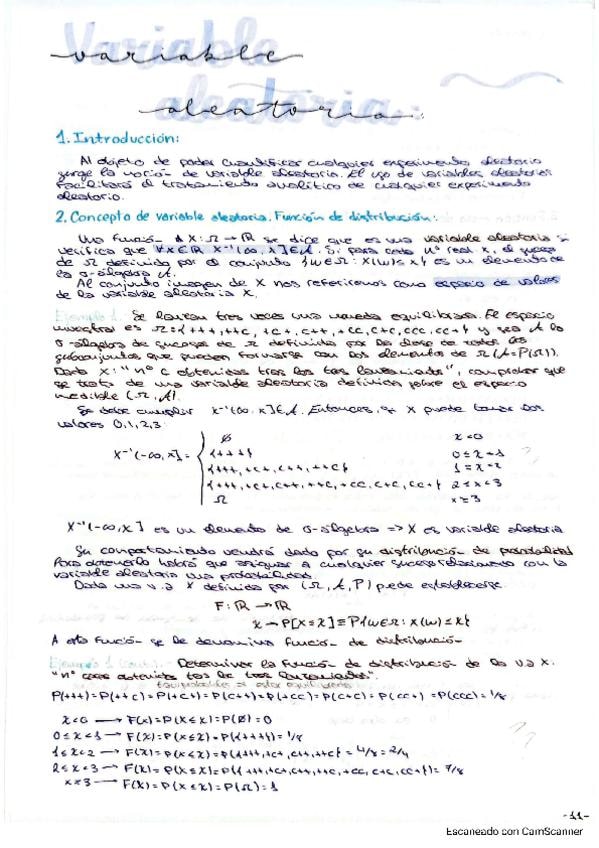 variable
aleatoria:
1. Introducción:
Al objeto de poder cuantificar cualquier experimento aleatorio
surge la noción de variable aleatoria. El uso de variables aleatorias
facilitará el tratamiento analítico de cualquier experimento
aleatorio.
2. Concepto de variable aleatoria. Función de distribución:
Una función X: Ω → ℝ se dice que es una variable aleatoria si
verifica que ∀x∈ℝ X⁻¹(-∞, x] ∈ A. Si para cada nº real x, el suceso
de Ω definido por el conjunto {w∈Ω: X(w)≤x} es un elemento de
la σ-álgebra A.
Al conjunto imagen de X nos referiremos como espacio de valores
de la variable aleatoria X.
Ejemplo 1. Se lanzan tres veces una moneda equilibrada. El espacio
muestral es Ω={+++, ++c, +c+, c++, +cc, c+c, ccc, cc+} y sea A la
σ-álgebra de sucesos de Ω definida por la clase de todos los
subconjuntos que pueden formarse con los elementos de Ω (A=P(Ω)).
Dada X: "nº c obtenidas tras los tres lanzamientos", comprobar que
se trata de una variable aleatoria definida sobre el espacio
medible (Ω, A).
Se debe cumplir X⁻¹(-∞, x] ∈ A. Entonces, X puede tomar los
valores 0, 1, 2, 3:
∅ x<0
{+++} 0≤x<1
X⁻¹(-∞, x] = {+++, +c+, c++, ++c} 1≤x<2
{+++, +c+, c++, ++c, +cc, c+c, cc+} 2≤x<3
Ω x≥3
X⁻¹(-∞, x] es un elemento de σ-álgebra => X es variable aleatoria
Su comportamiento vendrá dado por su distribución de probabilidad
Para obtenerlo habrá que asignar a cualquier suceso relacionado con la
variable aleatoria una probabilidad.
Dada una v.a X definida por (Ω, A, P) puede establecerse
F: ℝ → ℝ
x → P[X≤x] ≡ P{w∈Ω: X(w)≤x}
A esta función se le denomina función de distribución
Ejemplo 1 (cont.). Determinar la función de distribución de la v.a X:
"nº caras obtenidas tras los tres lanzamientos".
P(+++)=P(++c)=P(+c+)=P(c++)=P(+cc)=P(c+c)=P(cc+)=P(ccc)=1/8
x<0 → F(x)=P(X≤x)=P(∅)=0
0≤x<1 → F(x)=P(X≤x)=P({+++})=1/8
1≤x<2 → F(x)=P(X≤x)=P({+++, +c+, c++, ++c})=4/8=2/4
2≤x<3 → F(x)=P(X≤x)=P({+++, +c+, c++, ++c, +cc, c+c, cc+})=7/8
x≥3 → F(x)=P(X≤x)=P(Ω)=1
-11-
Escaneado con CamScanner